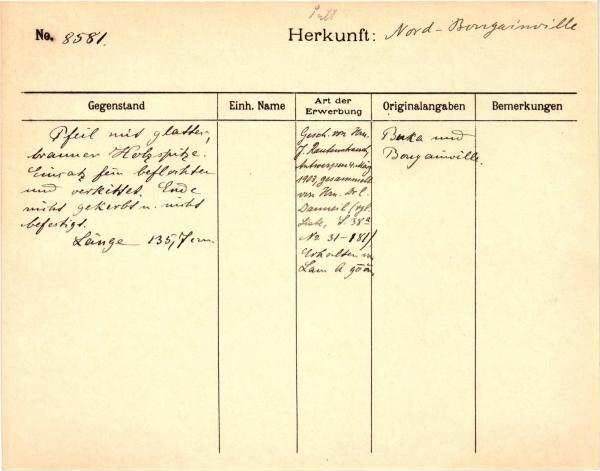 No. 8581.
Herkunft: Nord-Bougainville
Gegenstand
Einh. Name
Art der Erwerbung
Originalangaben
Bemerkungen
Pfeil mit glatter,
brauner Holzspitze.
Einsatz fein beflochten
und verkittet. Ende
nicht gekerbt u. nicht
befestigt.
Länge 135,7 cm
Gesch. von Hrn.
J. Rautenstrauch,
Antwerpen 4. März
1908, gesammelt
von Hrn. Dr.
(vgl.
Liste, S. 38a
No 31-181)
Erhalten
Buka und
Bougainville.